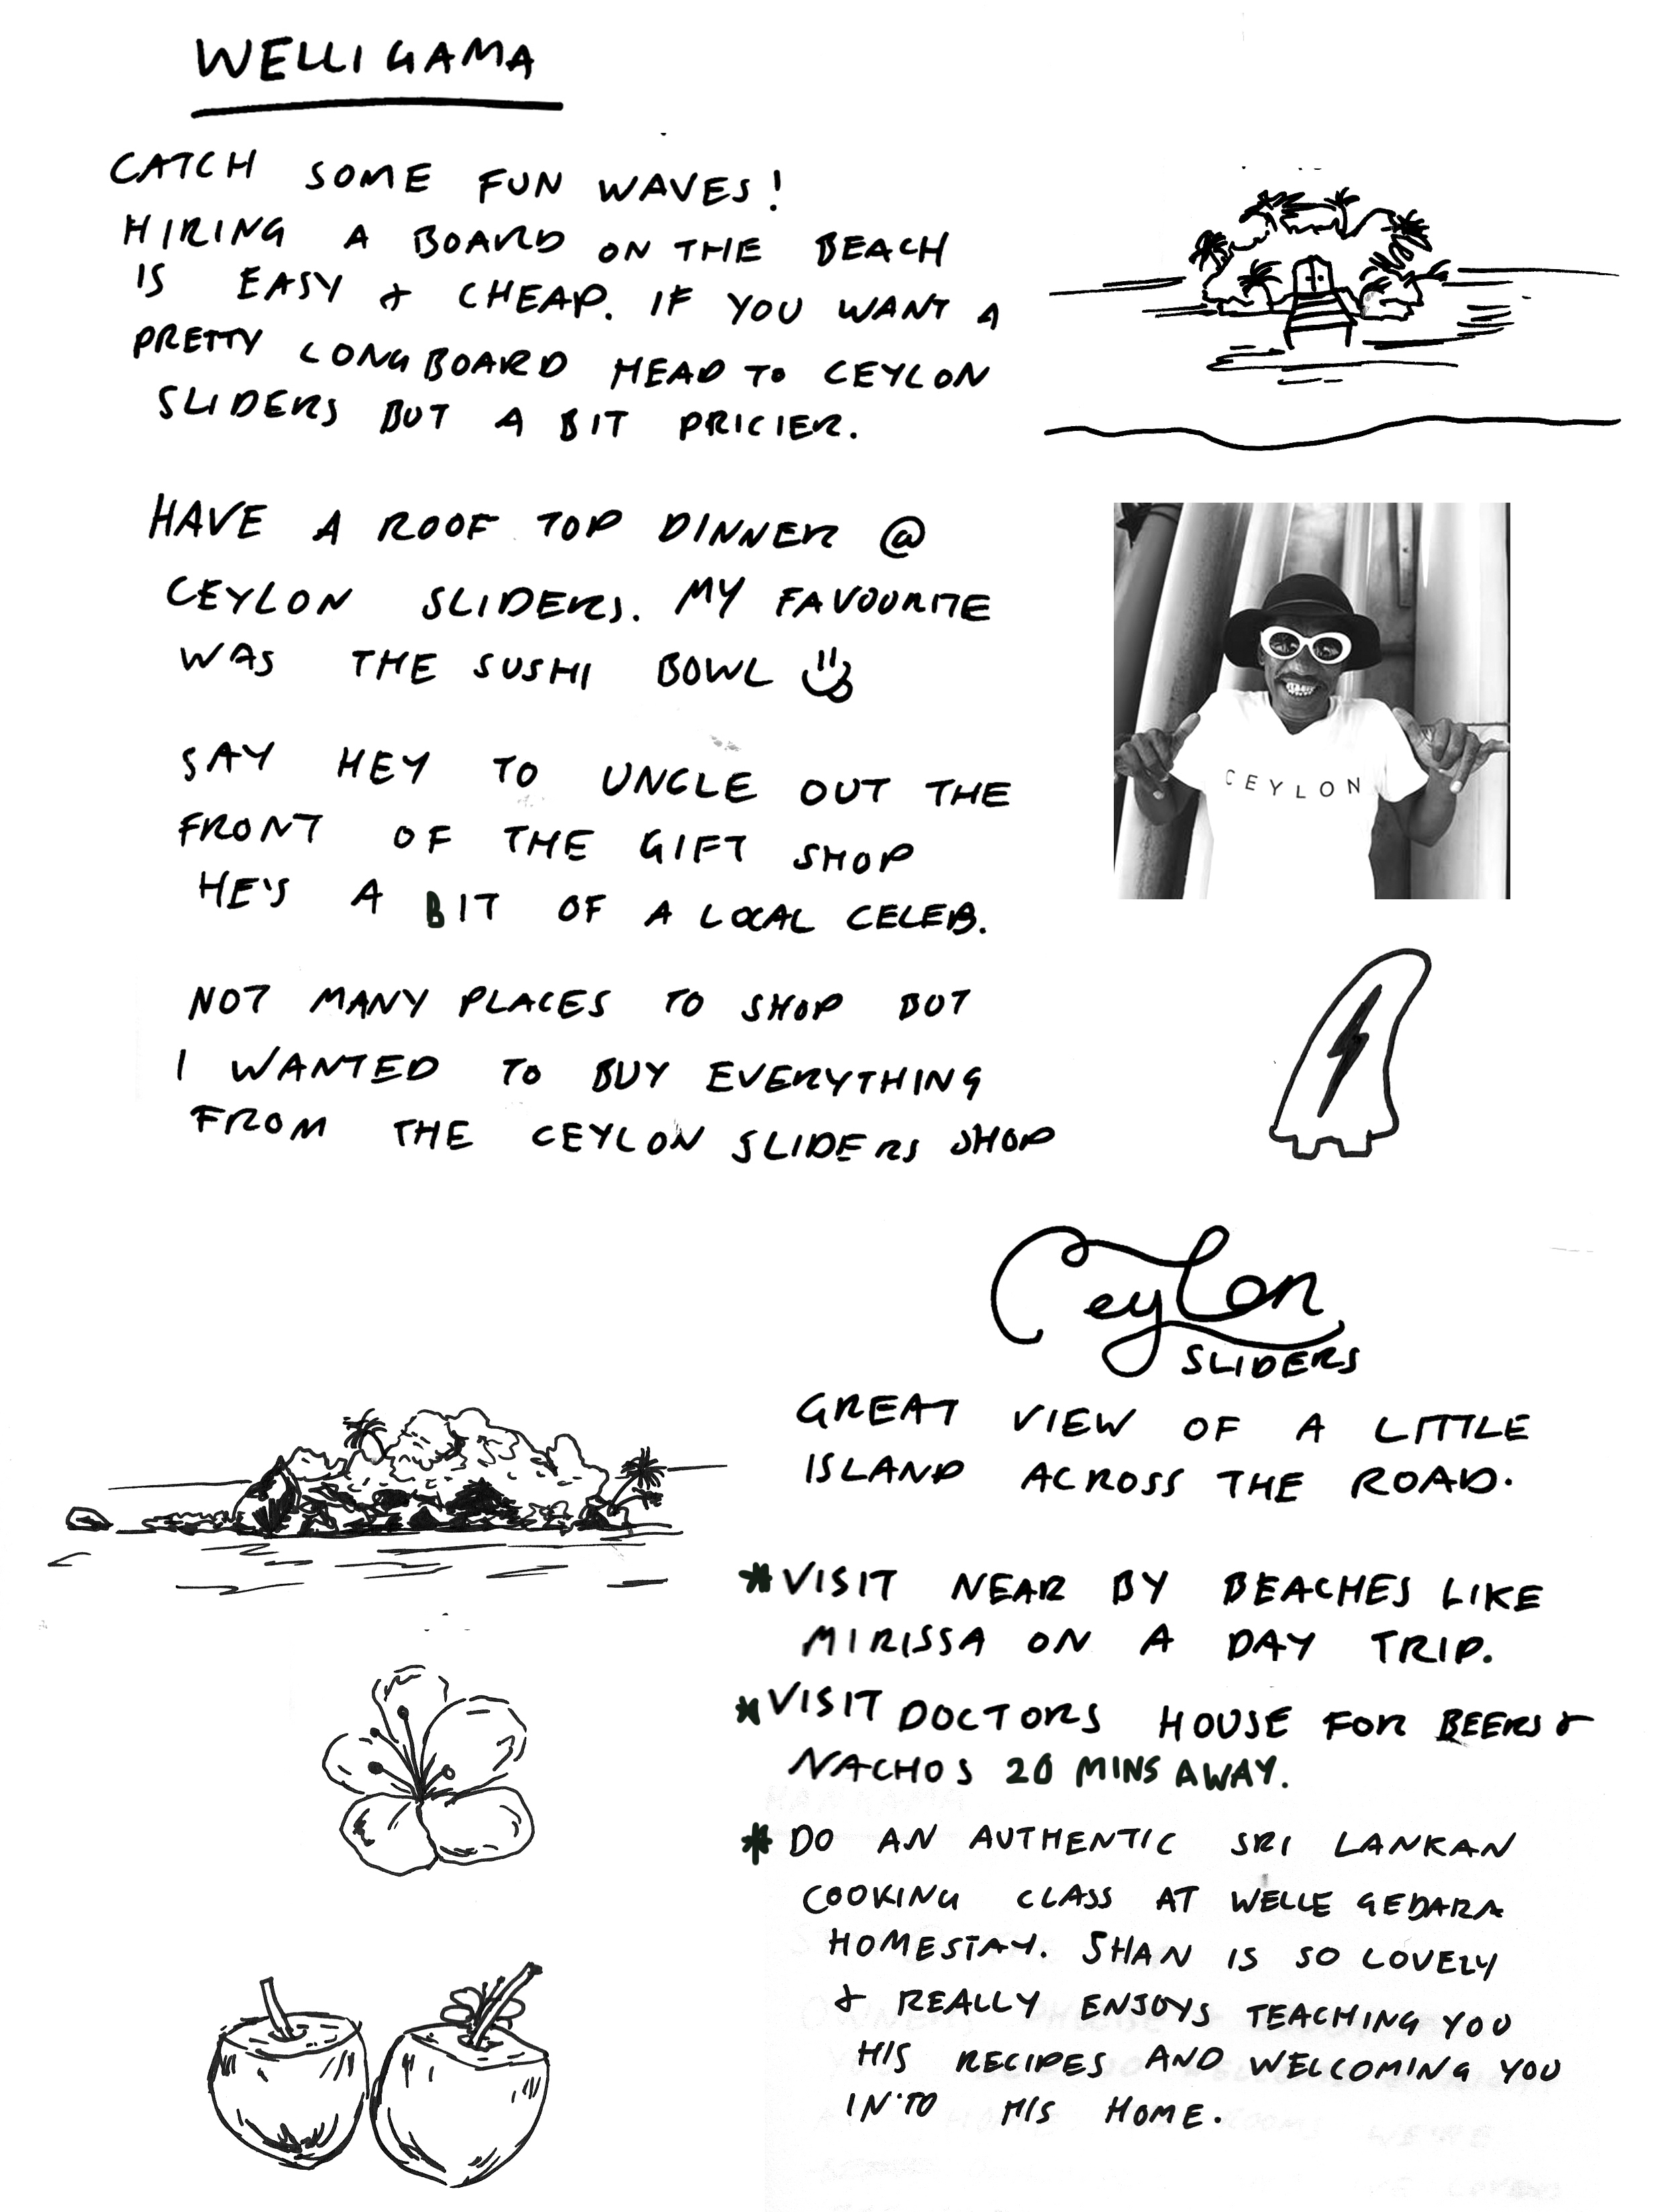 WELLIGAMA
CATCH SOME FUN WAVES!
HIRING A BOARD ON THE BEACH
IS EASY & CHEAP. IF YOU WANT A
PRETTY LONGBOARD HEAD TO CEYLON
SLIDERS BUT A BIT PRICIER.
HAVE A ROOF TOP DINNER @
CEYLON SLIDERS. MY FAVOURITE
WAS THE SUSHI BOWL
SAY HEY TO UNCLE OUT THE
FRONT OF THE GIFT SHOP
HE'S A BIT OF A LOCAL CELEB.
CEYLON
NOT MANY PLACES TO SHOP BUT
I WANTED TO BUY EVERYTHING
FROM THE CEYLON SLIDERS SHOP
Ceylon
SLIDERS
GREAT VIEW OF A LITTLE
ISLAND ACROSS THE ROAD.
* VISIT NEAR BY BEACHES LIKE
MIRISSA ON A DAY TRIP.
* VISIT DOCTORS HOUSE FOR BEERS &
NACHOS 20 MINS AWAY.
* DO AN AUTHENTIC SRI LANKAN
COOKING CLASS AT WELLE GEDARA
HOMESTAY. SHAN IS SO LOVELY
& REALLY ENJOYS TEACHING YOU
HIS RECIPES AND WELCOMING YOU
IN'TO HIS HOME.